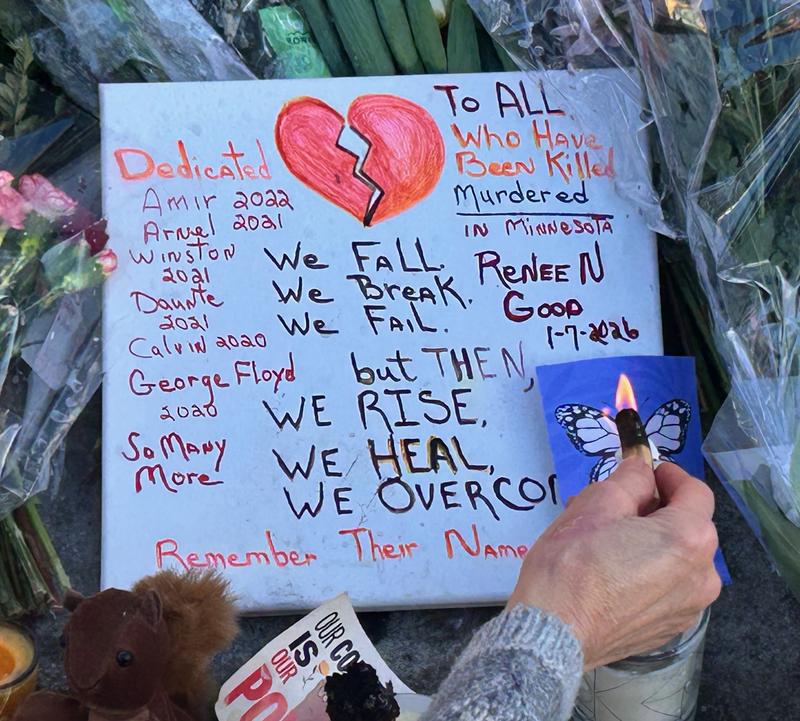 To ALL
Who Have
Been Killed
Murdered
IN MINNESOTA
RENEE N
GOOD
1-7-2026
Dedicated
Amir 2022
Arnel 2021
WINSTON
2021
Daunte
2021
Calvin 2020
George Floyd
2020
So MANY
More
We FALL.
We BreaK.
We FaiL.
but THEN,
WE RISE,
WE HEAL,
WE OVERCO
Remember Their Name
OUR CO
IS
OUR
PO